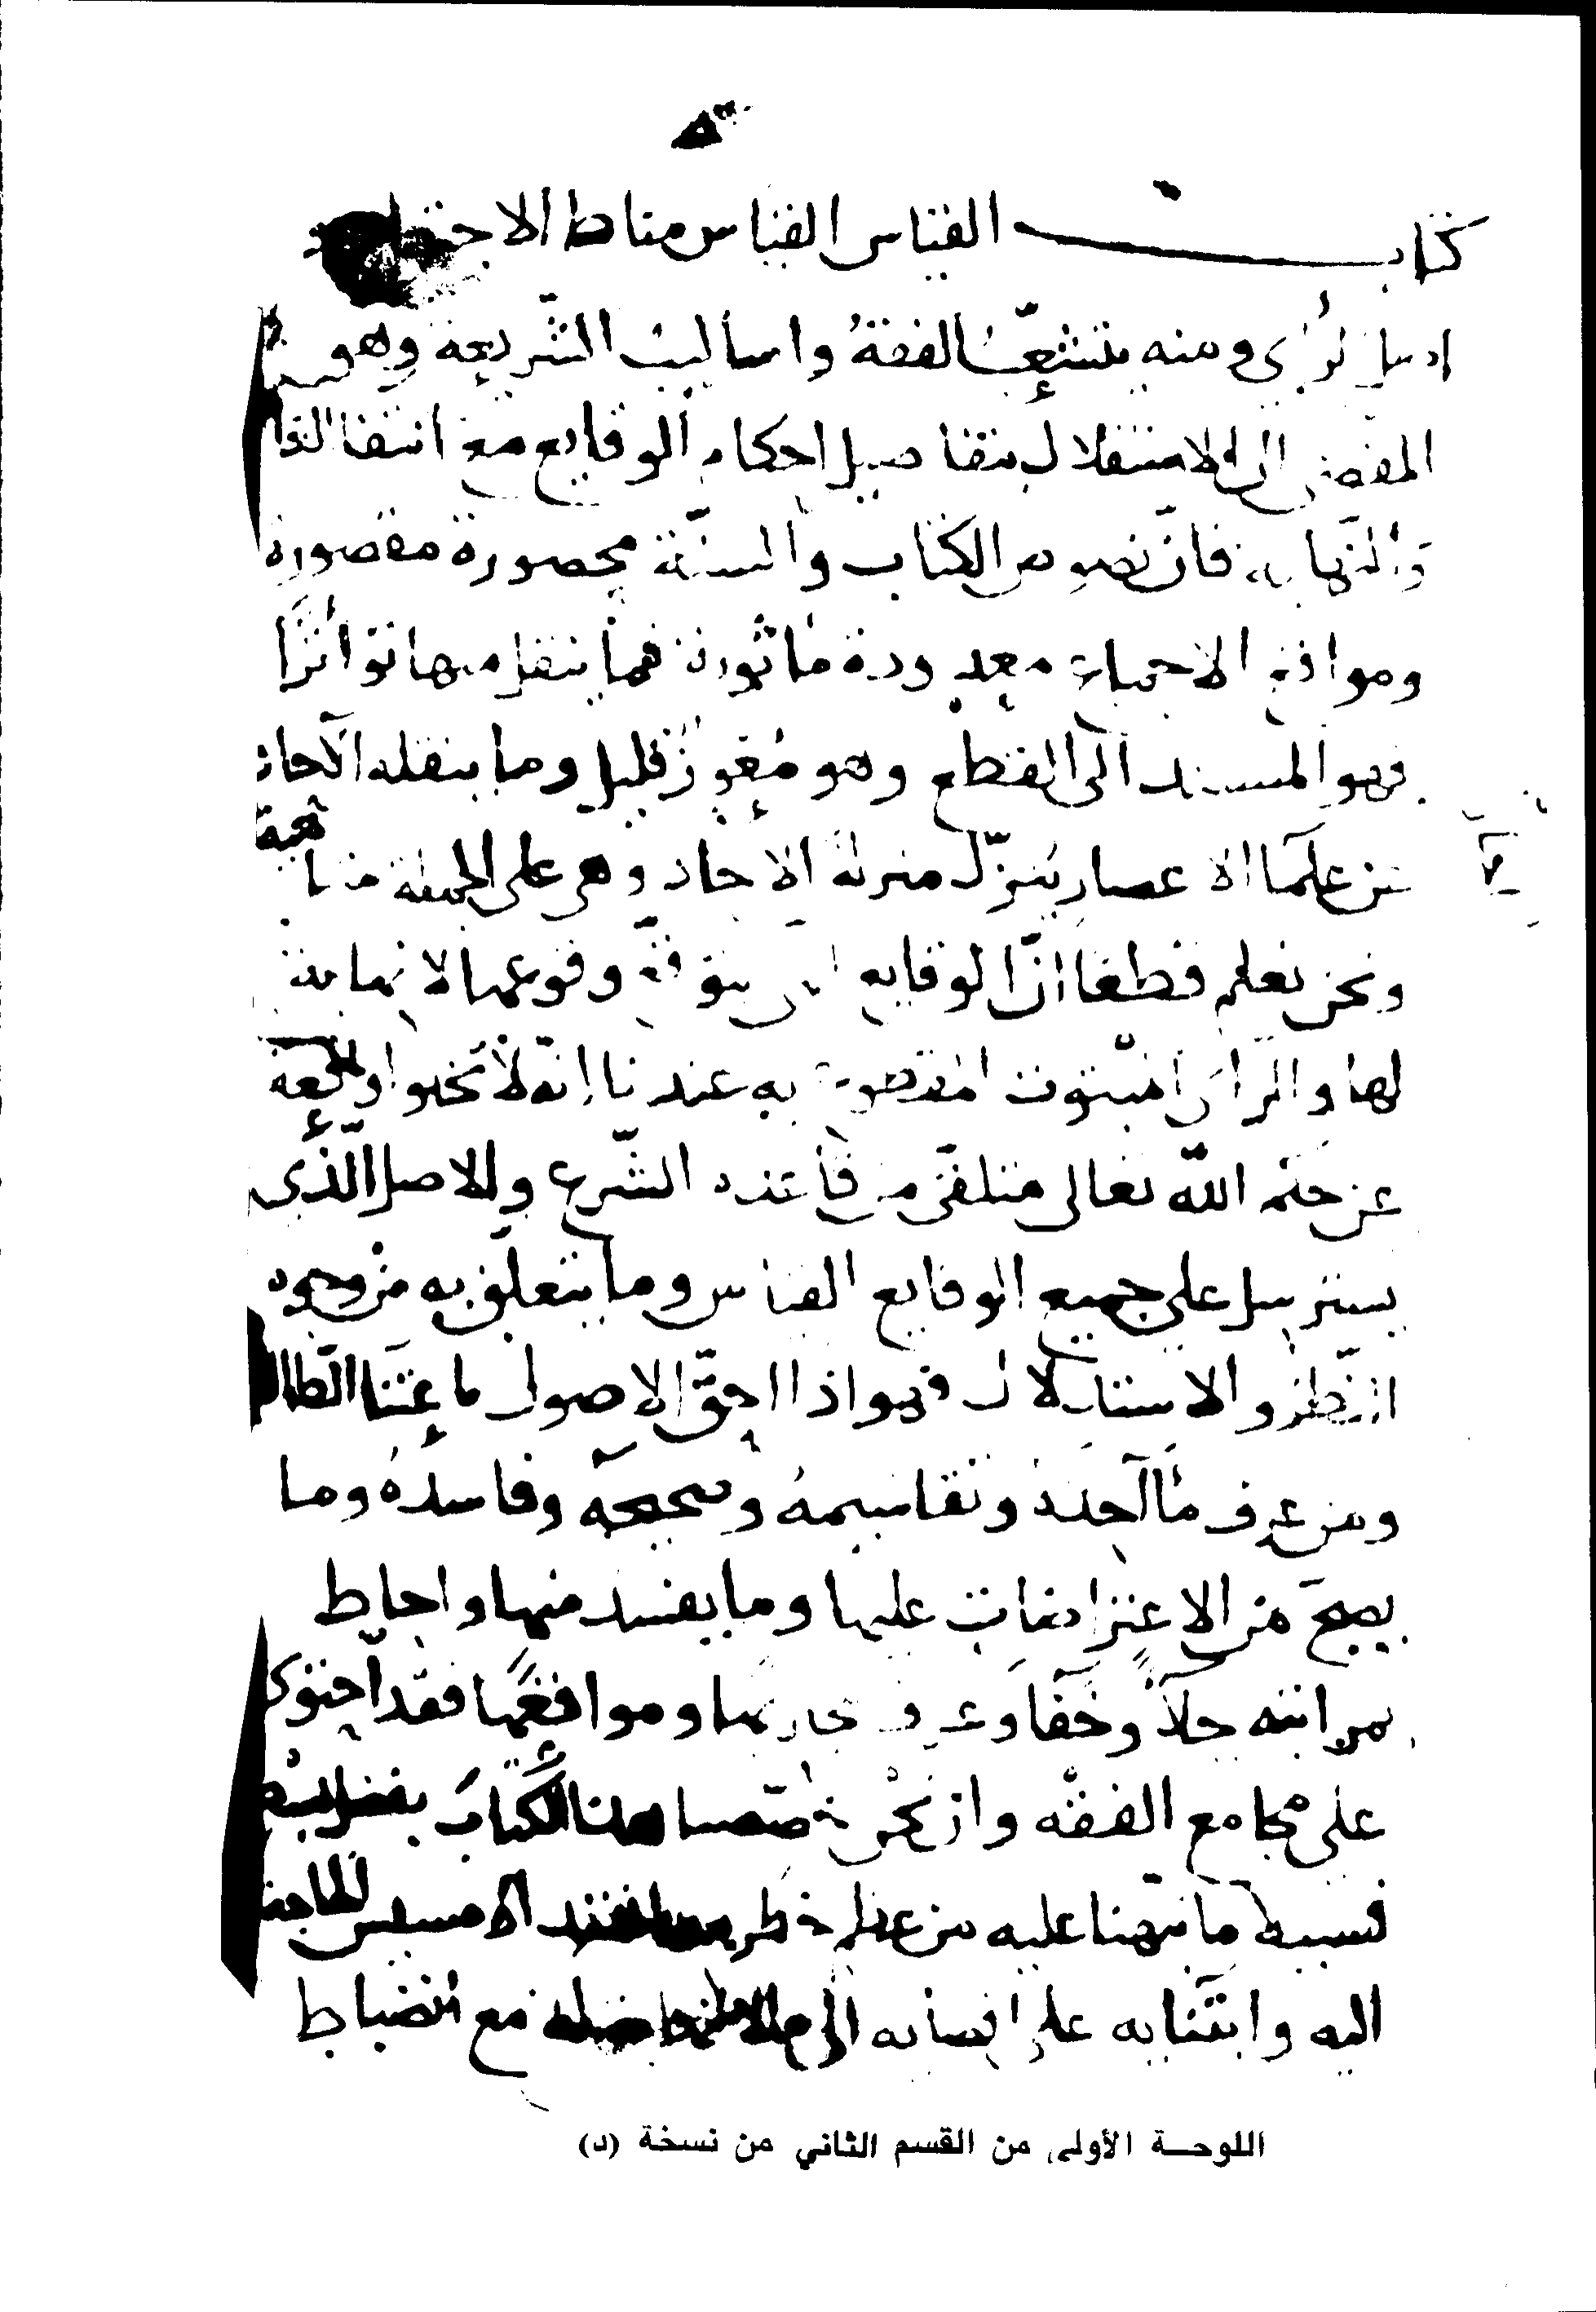 كتاب القياس القياس مناط الاجتهاد
واصل الرأي ومنه يتشعّب الفقه واساليب الشّريعة وهو
المفضي الى الاستقلال بتفاصيل احكام الوقايع مع انتفا الغاية
والنّهاية فانّ نصوص الكتاب والسنّة محصورة مقصورة
ومواقع الاجماع معدودة مأثورة فما ينقل منهما تواترًا
فهو المستند الى القطع وهو مُعوِزٌ قليل وما ينقله الآحاد
من علما الاعصار ينزّل منزلة الاحاد وهي على الجملة متناهية
ونحن نعلم قطعا انّ الوقايع التي يتوقّع وقوعها لا نهاية
لها والرأي المبتوت المقطوع به عندنا انّه لا تخلوا واقعة
عن حكم الله تعالى متلقّى من قاعدة الشّرع والاصل الّذي
يسترسل على جميع الوقايع القياس وما يتعلّق به من وجوه
النّظر والاستدلال فهو اذا احقّ الاصول باعتنا الطّالب
ومن عرف مآخذه وتقاسيمه وصحيحه وفاسده وما
يصحّ من الاعتراضات عليها وما يفسد منها واحاط
بمراتبه جلآً وخفآ وعرف مجاريها ومواقعها فقد احتوى
على مجامع الفقه واذ نحن خصّصنا هذا الكتاب
فسببه ما نبّهنا عليه من عظم خطر الامر
اليه وابتنايه على افضايه الى مع انضباط
اللوحة الأولى من القسم الثاني من نسخة (د)